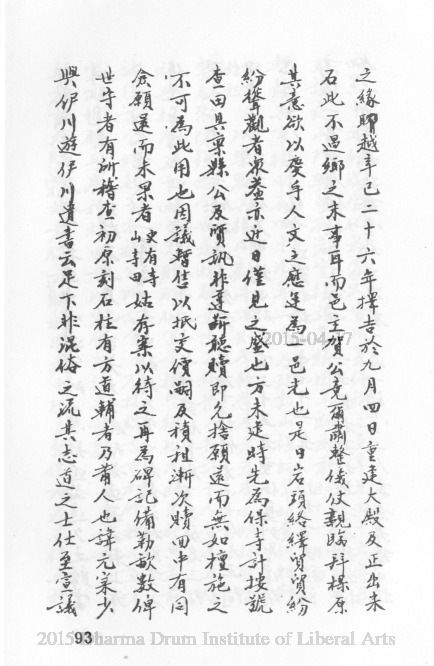 之緣暇越辛巳二十六年擇吉於九月四日重建大殿及正出未
石此不過鄉之末事耳而邑主賀公竟爾肅整儀仗親臨拜樑原
其意欲以慶乎人文之應運為一邑光也是日岩頭絡繹貿貿紛
紛聳觀者衆蓋亦近日僅見之盛也方未建時先為保寺計按號
查田具稟縣公及質訊非遑斷聽贖即允捨願還而無如檀施之
不可為此用也因議暫售以抵交價嗣及積租漸次贖回中有同
僉願還而未果者更有寺山寺田姑存案以待之再為碑記備勒畝數俾
世守者有所稽查初原刻石柱有方道輔者乃莆人也諱元寀少
與伊川遊伊川遺書云足下非混俗之流其志道之士仕至宣議
2015-04-07
93
2015 Dharma Drum Institute of Liberal Arts